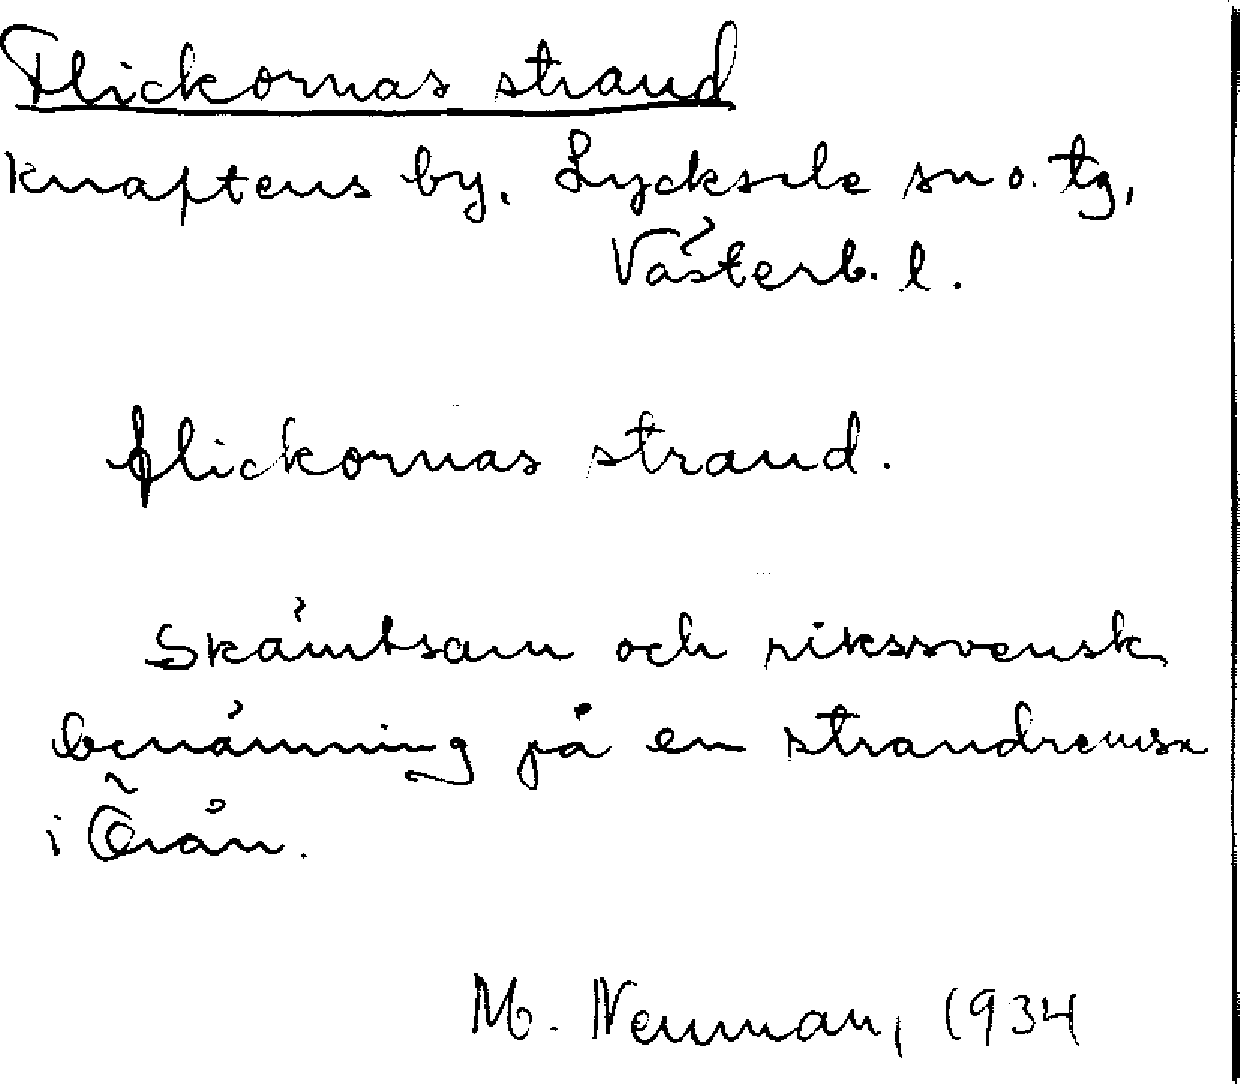 Flickornas strand
Knaftens by. Lycksele sn o. tg,
Västerb. l.
flickornas strand.
Skämtsam och rikssvensk
benämning på en strandremsa
i Örån.
M. Neuman, 1934